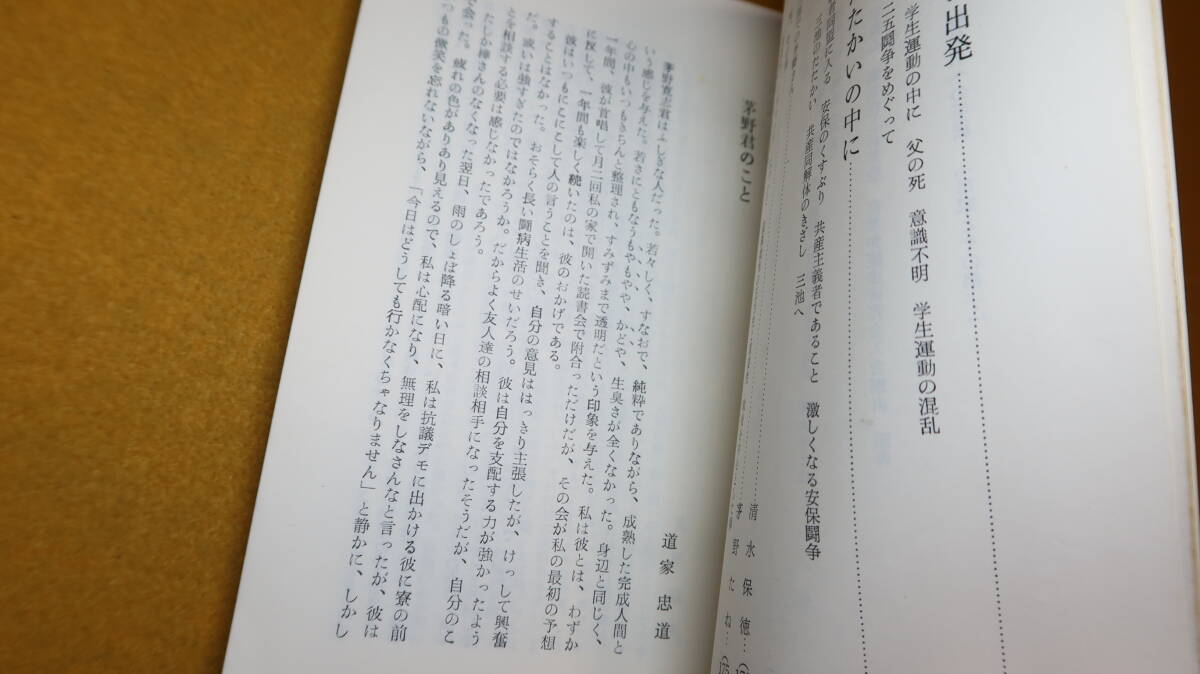 出発
学生運動の中に　父の死　意識不明　学生運動の混乱
二五闘争をめぐって
たたかいの中に
者同盟に入る　安保のくすぶり　共産主義者であること　激しくなる安保闘争
三池のたたかい　共産同解体のきざし　三池へ
清水保徳
茅野たね…(175
茅野君のこと
道家忠道
茅野寛志君はふしぎな人だった。若々しく、すなおで、純粋でありながら、成熟した完成人間と
いう感じを与えた。若さにともなうもやもや、かどや、生臭さが全くなかった。身辺と同じく、
心の中もいつもきちんと整理され、すみずみまで透明だという印象を与えた。私は彼とは、わずか
一年間、彼が首唱して月二回私の家で開いた読書会で附合っただけだが、その会が私の最初の予想
に反して、一年間も楽しく続いたのは、彼のおかげである。
彼はいつもにこにこして人の言うことを聞き、自分の意見ははっきり主張したが、けっして興奮
することはなかった。おそらく長い闘病生活のせいだろう。彼は自分を支配する力が強かったよう
だ。或いは強すぎたのではなかろうか。だからよく友人達の相談相手になったそうだが、自分のこ
とを相談する必要は感じなかったであろう。
たしか樺さんのなくなった翌日、雨のしょぼ降る暗い日に、私は抗議デモに出かける彼に寮の前
で会った。疲れの色がありあり見えるので、私は心配になり、無理をしなさんなと言ったが、彼は
いつもの微笑を忘れないながら、「今日はどうしても行かなくちゃなりません」と静かに、しかし